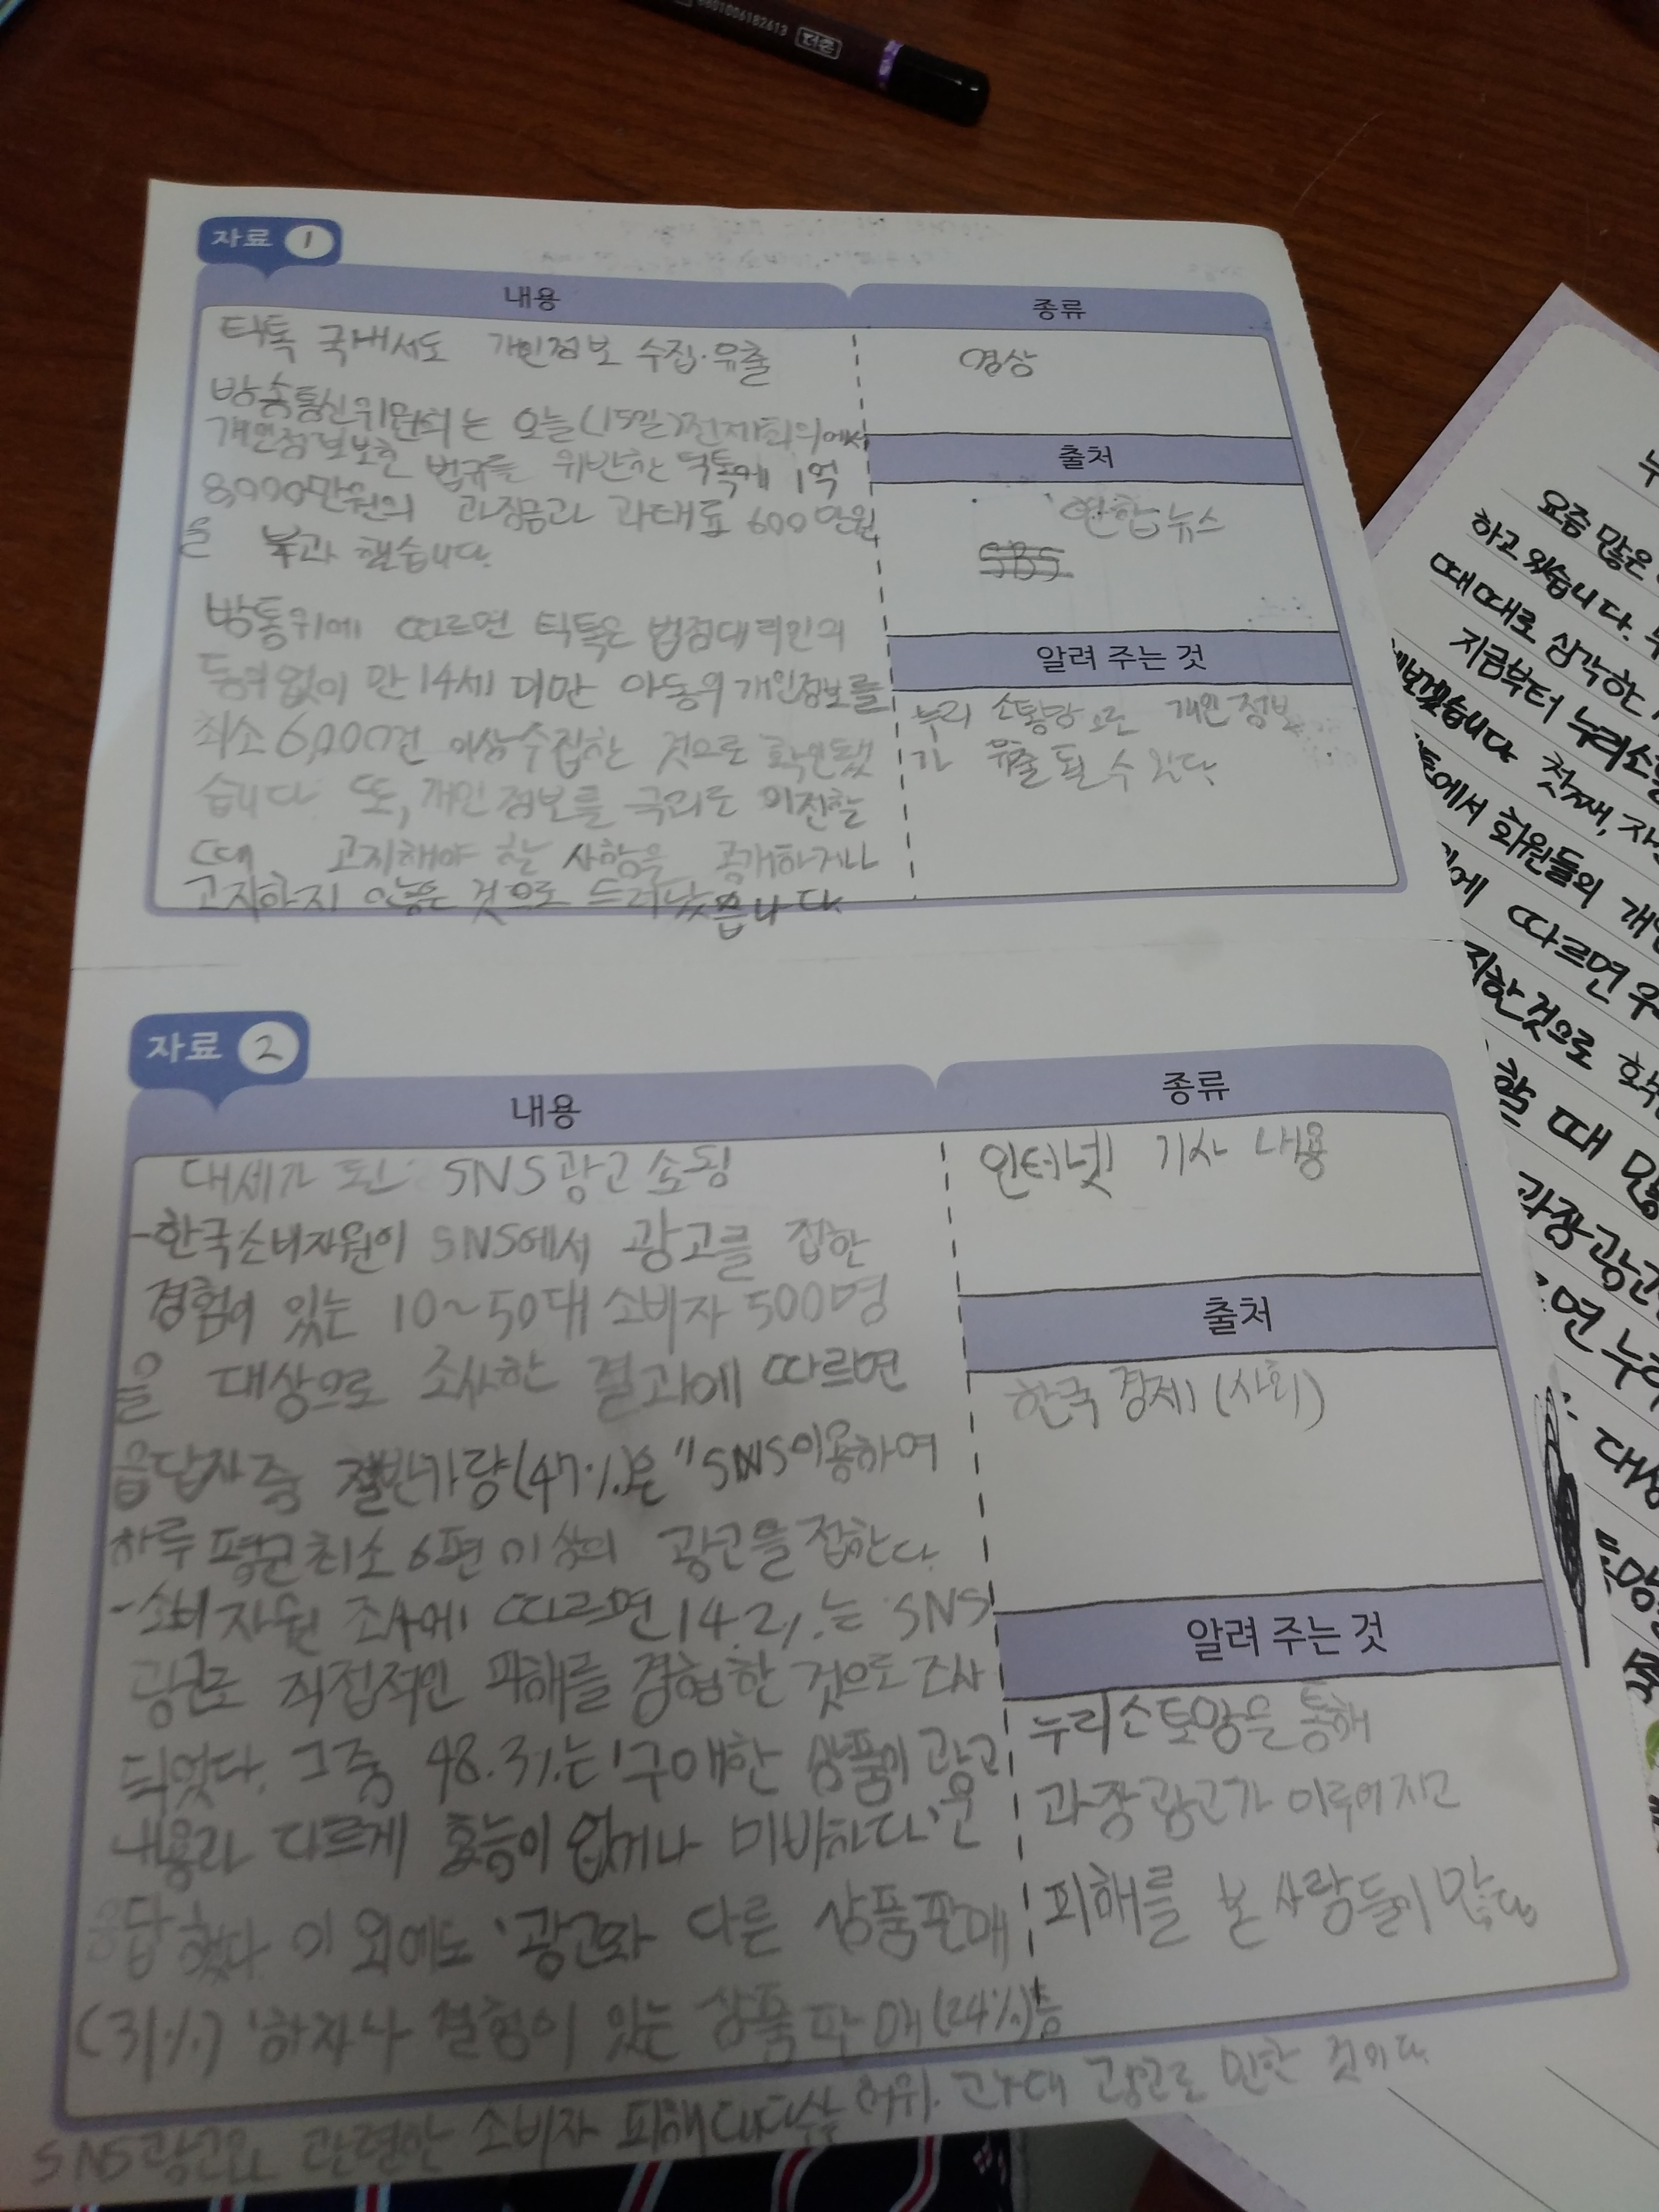 8801006182613 더존
자료 1
내용
틱톡 국내서도 개인정보 수집·유출
방송통신위원회는 오늘(15일)전체회의에서
개인정보보호 법규를 위반한 틱톡에 1억
8,000만원의 과징금과 과태료 600만원
을 부과 했습니다.
방통위에 따르면 틱톡은 법정대리인의
동의없이 만 14세 미만 아동의 개인정보를
최소 6,000건 이상 수집한 것으로 확인됐
습니다. 또, 개인정보를 국외로 이전할
때 고지해야 할 사항을 공개하거나
고지하지 않은 것으로 드러났습니다
종류
영상
출처
연합뉴스
SBS
알려 주는 것
누리 소통망으로 개인정보
가 유출 될 수 있다.
자료 2
내용
대세가 된 SNS광고 쇼핑
-한국소비자원이 SNS에서 광고를 접한
경험이 있는 10~50대 소비자 500명
을 대상으로 조사한 결과에 따르면
응답자 중 절반가량(47%)은 "SNS이용하여
하루 평균 최소 6편 이상의 광고을 접한다.
-소비자원 조사에 따르면 14.2%는 SNS
광고로 직접적인 피해를 경험한 것으로 조사
되었다. 그중 48.3%는 '구매한 상품이 광고
내용과 다르게 효능이 없거나 미비하다'은
응답했다 이 외에도 '광고와 다른 상품판매
(31%) '하자나 결험이 있는 상품 판매(24%)'등
SNS광고와 관련한 소비자 피해 대다수는 허위·과대 광고로 인한 것이다.
종류
인터넷 기사 내용
출처
한국 경제 (사회)
알려 주는 것
누리소통망을 통해
과장광고가 이루어지고
피해를 본 사람들이 많다
요즘 많은
하고 있습니다.
때때로 삼각한
지금부터 누리소
보겠습니다 첫째,
에서 회원들의 개
에 따르면
한것으로
할 때
과장광고
면 누리
대상